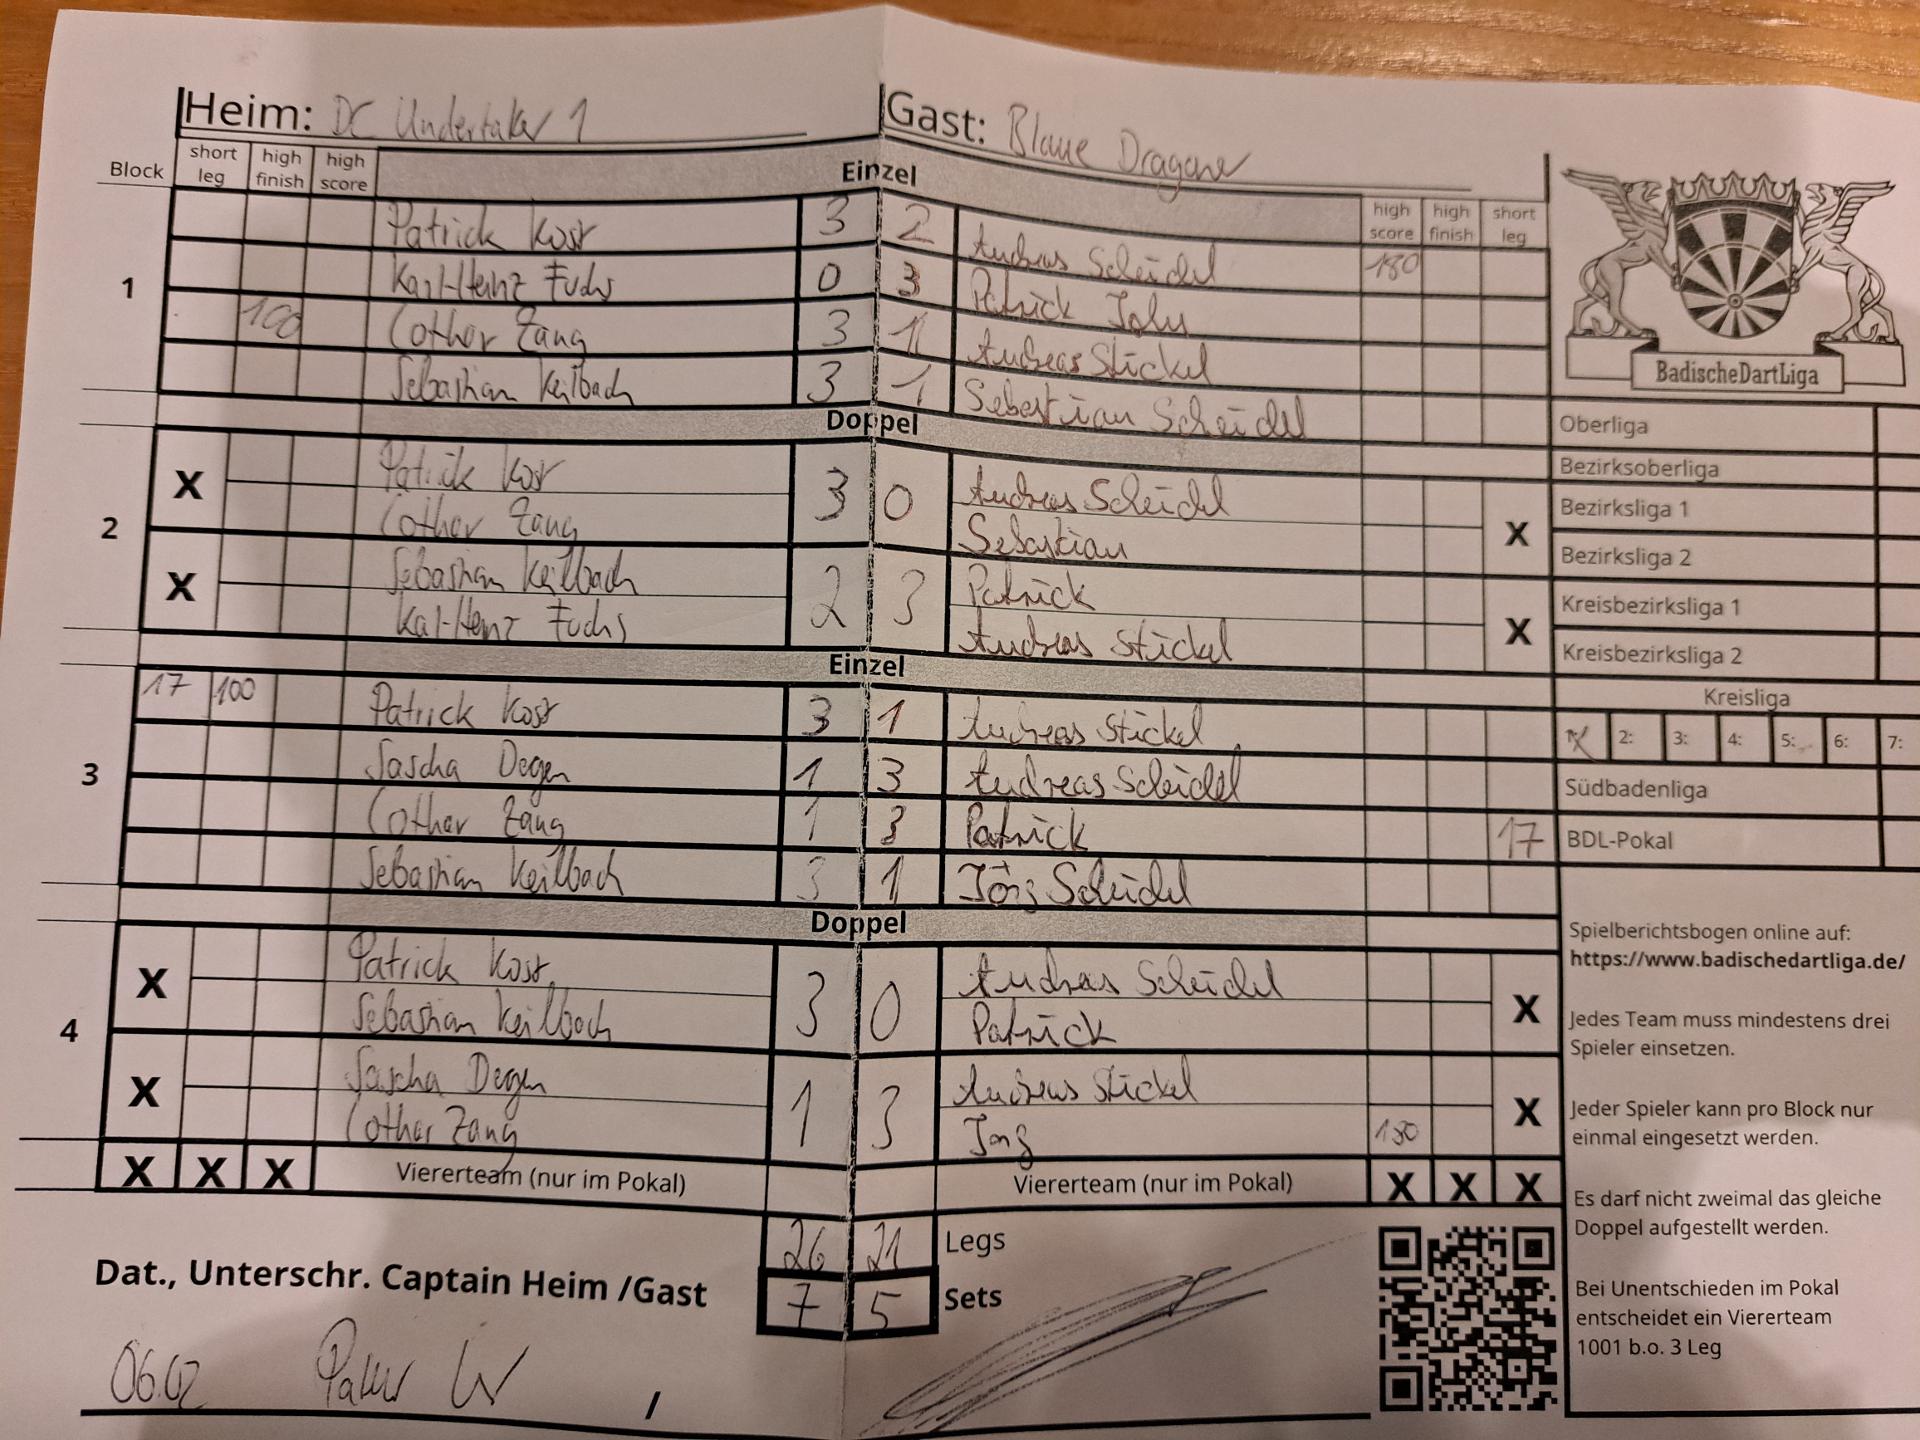 Heim: DC Undertaker 1
Gast: Blaue Dragone
Block short leg high finish high score
Einzel
high score high finish short leg
1
Patrick Kost 3 2 Andreas Scheidel 180
Karl-Heinz Fuchs 0 3 Patrick John
100 Lothar Zang 3 1 Andreas Stickel
Sebastian Keilbach 3 1 Sebastian Scheidel
Doppel
2
X Patrick Kost 3 0 Andreas Scheidel X
Lothar Zang Sebastian
X Sebastian Keilbach 2 3 Patrick X
Karl-Heinz Fuchs Andreas Stickel
Einzel
3
17 100 Patrick Kost 3 1 Andreas Stickel
Sascha Degen 1 3 Andreas Scheidel
Lothar Zang 1 3 Patrick 17
Sebastian Keilbach 3 1 Jörg Scheidel
Doppel
4
X Patrick Kost 3 0 Andreas Scheidel X
Sebastian Keilbach Patrick
X Sascha Degen 1 3 Andreas Stickel X
Lothar Zang Jörg 180
X X X Viererteam (nur im Pokal) Viererteam (nur im Pokal) X X X
26 21 Legs
7 5 Sets
Dat., Unterschr. Captain Heim /Gast
06.02
/
BadischeDartLiga
Oberliga
Bezirksoberliga
Bezirksliga 1
Bezirksliga 2
Kreisbezirksliga 1
Kreisbezirksliga 2
Kreisliga
2: 3: 4: 5: 6: 7:
Südbadenliga
BDL-Pokal
Spielberichtsbogen online auf:
https://www.badischedartliga.de/
Jedes Team muss mindestens drei
Spieler einsetzen.
Jeder Spieler kann pro Block nur
einmal eingesetzt werden.
Es darf nicht zweimal das gleiche
Doppel aufgestellt werden.
Bei Unentschieden im Pokal
entscheidet ein Viererteam
1001 b.o. 3 Leg